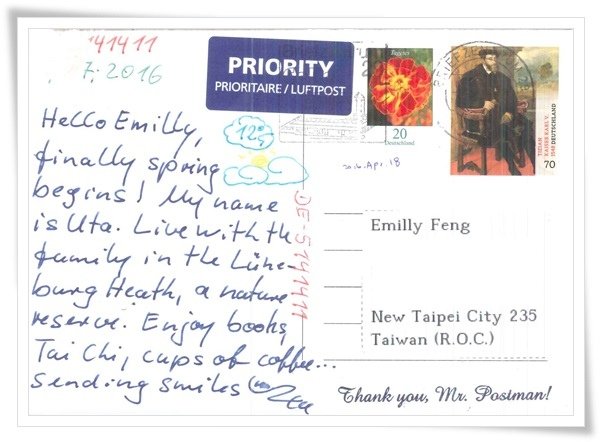 41411
7.2016
PRIORITY
PRIORITAIRE / LUFTPOST
Tagetes
20
Deutschland
TIZIAN
KAISER KARL V.
1548 DEUTSCHLAND
70
Hello Emilly,
finally spring
begins! My name
is Uta. Live with the
family in the Lüne-
burg Heath, a nature
reserve. Enjoy books,
Tai Chi, cups of coffee...
sending smiles
12°
2016.Apr.18
DE-5141411
Emilly Feng
New Taipei City 235
Taiwan (R.O.C.)
Thank you, Mr. Postman!